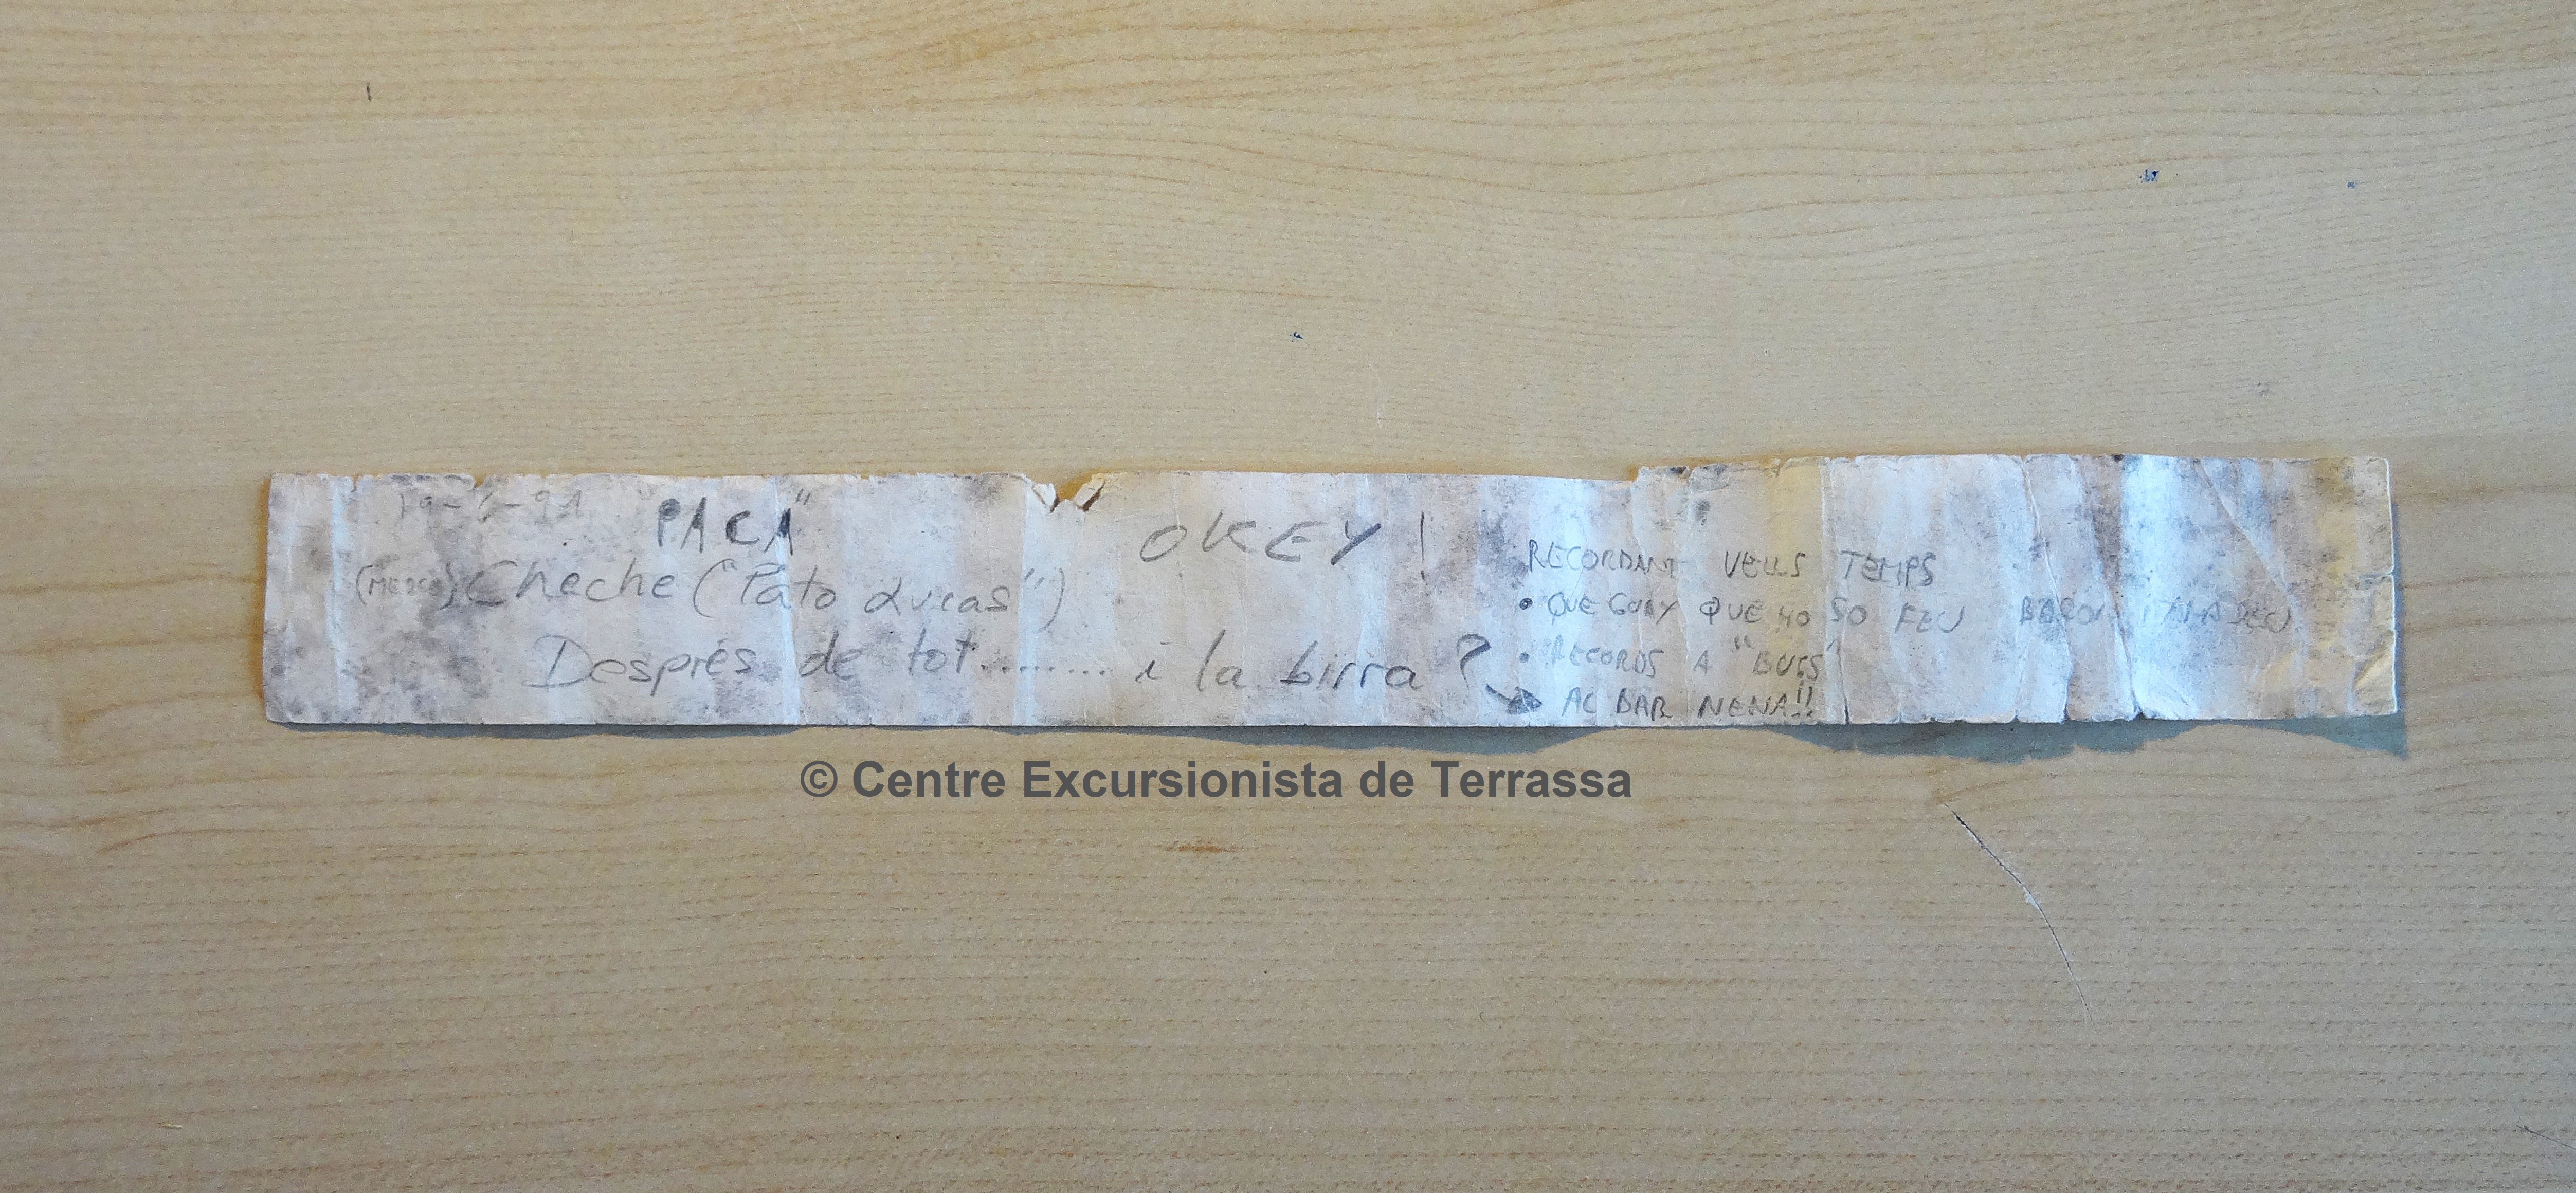 PACA"
Cheche ("Pato Lucas")
Després de tot........ i la birra?
OKEY!
RECORDANT VELLS TEMPS
• QUE QUE HO SO FEU
• RECORDS A "BUSS"
AL BAR NENA!!
© Centre Excursionista de Terrassa